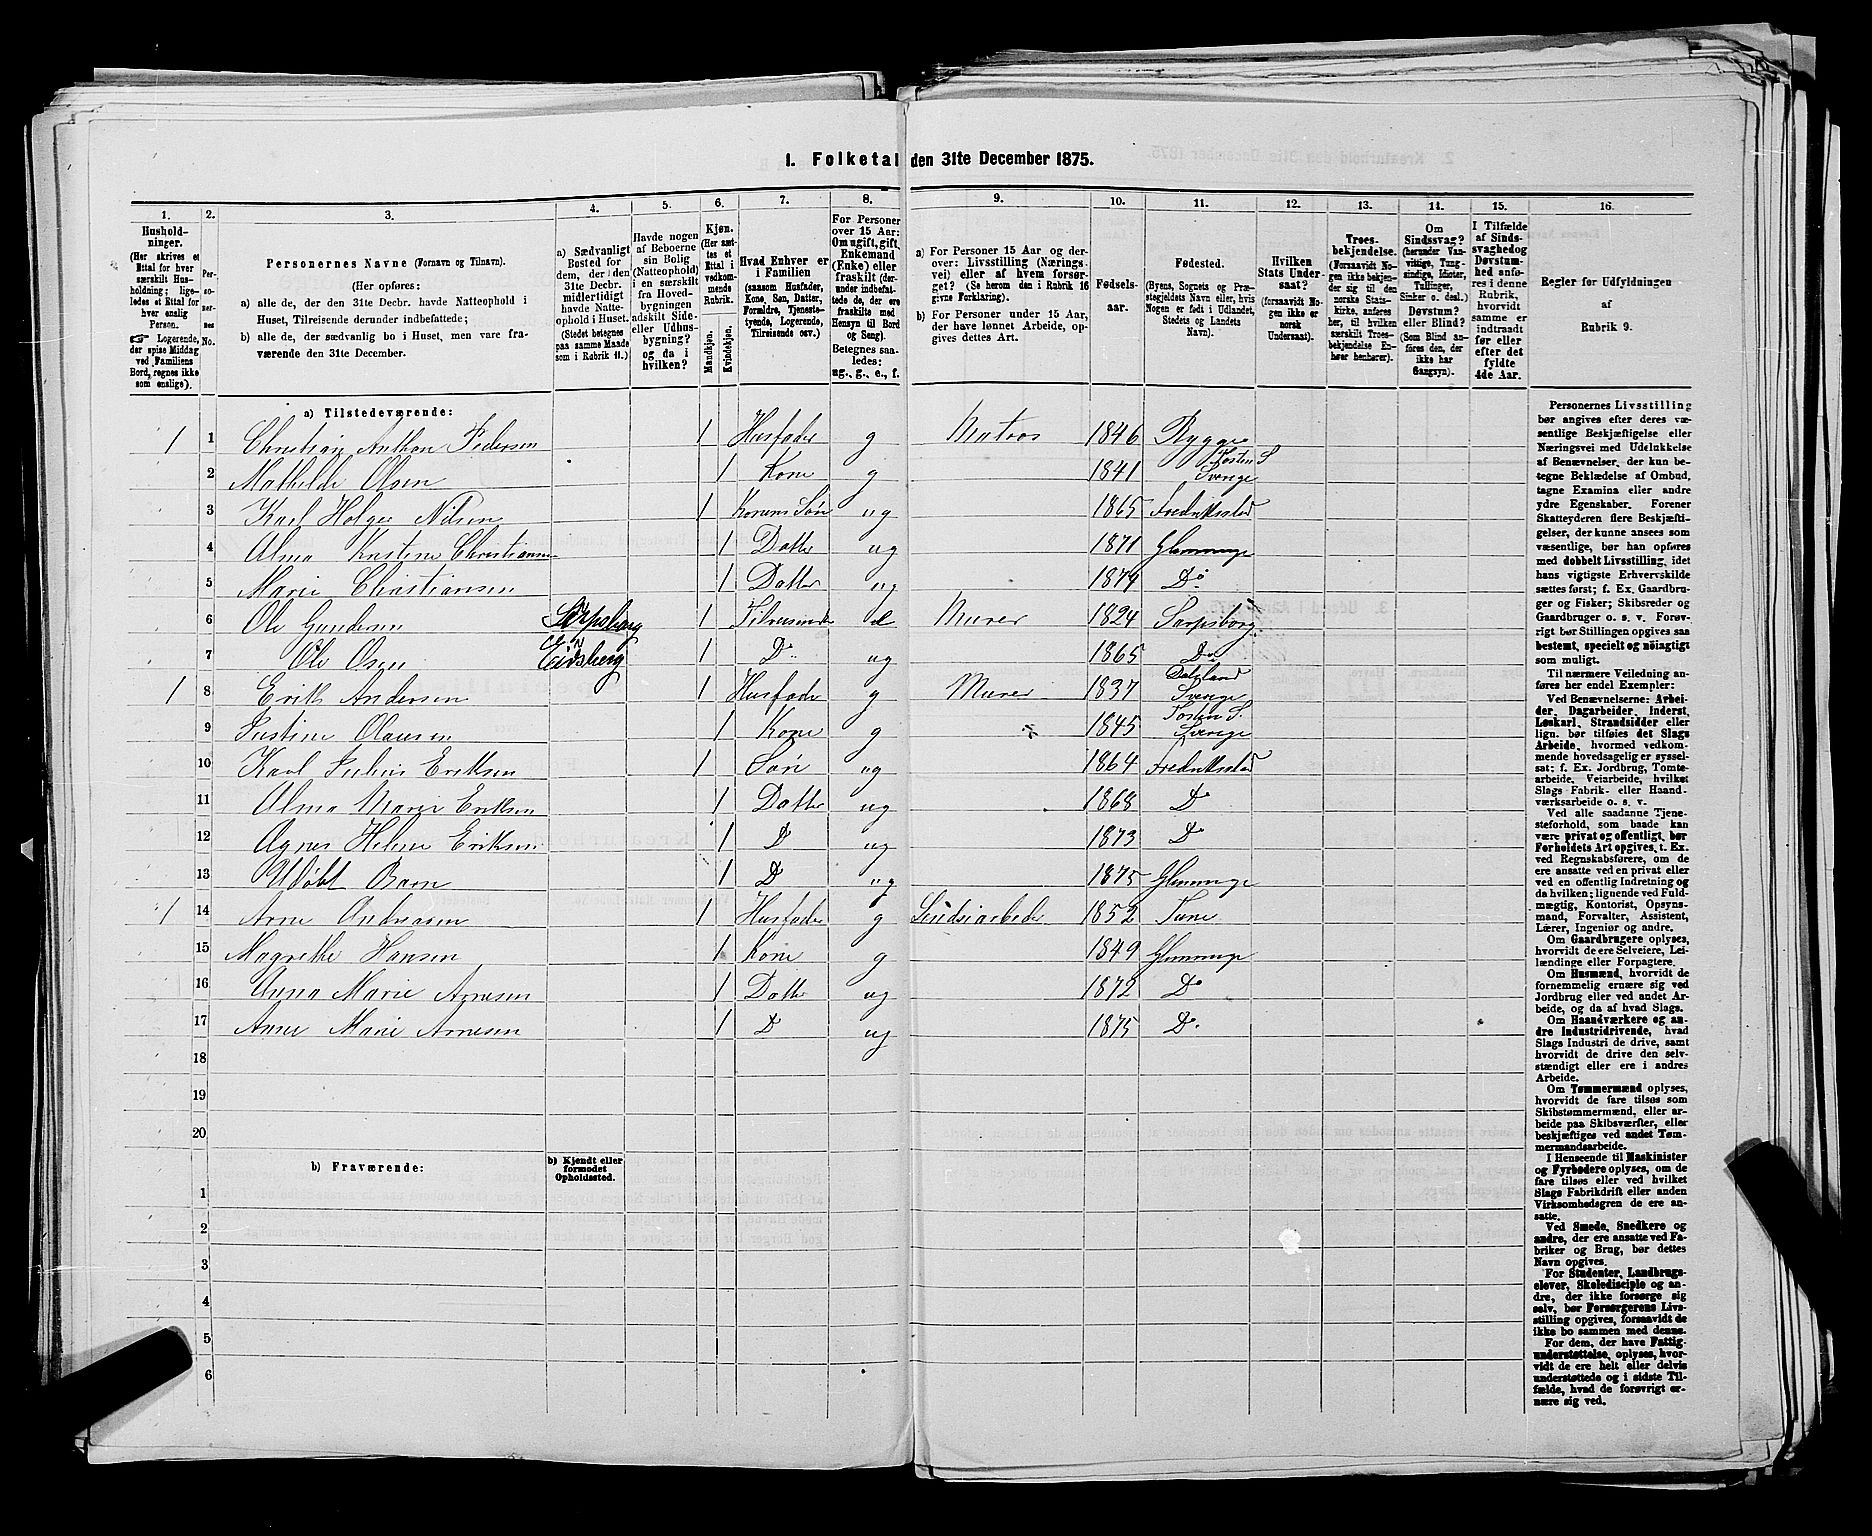 1. Folketal den 31te December 1875.
1. 2. 3. 4. 5. 6. 7. 8. 9. 10. 11. 12. 13. 14. 15. 16.
Husholdninger.
(Her skrives et Ettal for hver særskilt Husholdning; ligeledes et Ettal for hver enslig Person.
☞ Logerende, der spise Middag ved Familiens Bord, regnes ikke som enslige).
Personernes No.
Personernes Navne (Fornavn og Tilnavn).
(Her opføres:
a) alle de, der den 31te Decbr. havde Natteophold i Huset, Tilreisende derunder indbefattede;
b) alle de, der sædvanlig bo i Huset, men vare fraværende den 31te December.
a) Sædvanligt Bosted for dem, der i den 31te Decbr. midlertidigt havde Natteophold i Huset. (Stedet betegnes paa samme Maade som i Rubrik 11.)
Havde nogen af Beboerne sin Bolig (Natteophold) i en særskilt fra Hovedbygningen adskilt Side- eller Udhusbygning? og da i hvilken?
Kjøn. (Her sættes et Ettal i vedkommende Rubrik.
Mandkjøn. Kvindekjøn.
Hvad Enhver er i Familien
(saasom Husfader, Kone, Søn, Datter, Forældre, Tjenestetyende, Logerende, Tilreisende osv.)
For Personer over 15 Aar: Om ugift, gift, Enkemand (Enke) eller fraskilt (derunder indbefattede de, der ere fraskilte med Hensyn til Bord og Seng). Betegnes saaledes: ug., g., e., f.
a) For Personer 15 Aar og derover: Livsstilling (Næringsvei) eller af hvem forsørget? (Se herom den i Rubrik 16 givne Forklaring).
b) For Personer under 15 Aar, der have lønnet Arbeide, opgives dettes Art.
Fødselsaar.
Fødested.
(Byens, Sognets og Præstegjeldets Navn eller, hvis Nogen er født i Udlandet, Stedets og Landets Navn).
Hvilken Stats Undersaat?
(forsaavidt Nogen ikke er norsk Undersaat).
Troesbekjendelse.
(Forsaavidt Nogen ikke bekjender sig til den norske Statskirke, anføres her, til hvilken særskilt Troesbekjendelse Enhver henhører).
Om Sindssvag? (herunder Vanvittige, Tungsindige, Idioter, Tullinger, Sinker o. desl.) Døvstum? eller Blind? (Som Blind anføres den, der ikke har Gangsyn).
I Tilfælde af Sindssvaghed og Døvstumhed anføres i denne Rubrik, hvorvidt samme er indtraadt før eller efter det fyldte 4de Aar.
Regler for Udfyldningen
af
Rubrik 9.
a) Tilstedeværende:
1 1 Christian Anthon Pedersen 1 Husfader g Matros 1846 Rygge
2 Mathilde Olsen 1 Kone g 1841 Tosten S Sverige
3 Karl Holger Nilsen 1 Konens Søn ug 1865 Fredriksstad
4 Alma Kristine Christiansen 1 Datter ug 1871 Glemminge
5 Marie Christiansen 1 Datter ug 1874 Do
6 Ole Gundersen Sarpsborg 1 Tilreisende e Murer 1824 Sarpsborg
7 Ole Osen Eidsberg 1 Do ug 1865 Do
1 8 Erik Andersen 1 Husfader g Murer 1837 Dalsland Sverige
9 Justine Olausen 1 Kone g 1845 Tosten S. Sverige
10 Karl Julius Eriksen 1 Søn ug 1864 Fredriksstad
11 Alma Marie Eriksen 1 Datter ug 1868 Do
12 Agnes Helene Eriksen 1 D ug 1873 Do
13 Udøbt Barn 1 D ug 1875 Glemminge
1 14 Arne Andreasen 1 Husfader g 1852 Tune
15 Magrethe Hansen 1 Kone g 1849 Glemminge
16 Anna Marie Arnesen 1 Datter ug 1872 Do
17 Anne Marie Arnesen 1 D ug 1875 Do
18
19
20
b) Fraværende: b) Kjendt eller formodet Opholdssted.
1
2
3
4
5
6
Personernes Livsstilling
bør angives efter deres væ-
sentlige Beskjæftigelse eller
Næringsvei med Udelukkelse
af Benævnelser, der kun be-
tegne Beklædelse af Ombud,
tagne Examina eller andre
ydre Egenskaber. Forener
Skatteyderen flere Beskjæfti-
gelser, der kunne ansees som
væsentlige, bør han opføres
med dobbelt Livsstilling, idet
hans vigtigste Erhvervskilde
sættes først; f. Ex. Gaardbru-
ger og Fisker; Skibsreder og
Gaardbruger o. s. v. Forøv-
rigt bør Stillingen opgives saa
bestemt, specielt og nøiagtigt
som muligt.
Til nærmere Veiledning an-
føres her endel Exempler:
Ved Benævnelserne: Arbei-
der, Dagarbeider, Inderst,
Løskarl, Strandsidder eller
lign. bør tilføies det Slags
Arbeide, hvormed vedkom-
mende hovedsagelig er syssel-
sat; f. Ex. Jordbrug, Tomte-
arbeide, Veiarbeide, hvilket
Slags Fabrik- eller Haand-
værksarbeide o. s. v.
Ved alle saadanne Tjene-
steforhold, som baade kan
være privat og offentligt, bør
Forholdets Art opgives, t. Ex.
ved Regnskabsførere, om de
ere ansatte ved en privat eller
ved en offentlig Indretning og
da hvilken; lignende ved Fuld-
mægtig, Kontorist, Opsyns-
mand, Forvalter, Assistent,
Lærer, Ingeniør og andre.
Om Gaardbrugere oplyses,
hvorvidt de ere Selveiere, Lei-
lændinge eller Forpagtere.
Om Husmænd, hvorvidt de
fornemmelig ernære sig ved
Jordbrug eller ved andet Ar-
beide, og da af hvad Slags.
Om Haandværkere og an-
dre Industridrivende, hvad
Slags Industri de drive, samt
hvorvidt de drive den selv-
stændigt eller ere i andres
Arbeide.
Om Tømmermænd oplyses,
hvorvidt de fare tilsøs som
Skibstømmermænd, eller ar-
beide paa Skibsværfter, eller
beskjæftiges ved andet Tøm-
mermandsarbeide.
I Henseende til Maskinister
og Fyrbødere oplyses, om de
fare tilsøs eller ved hvilket
Slags Fabrikdrift eller anden
Virksomhedsgren de ere an-
satte.
Ved Smede, Snedkere og
andre, der ere ansatte ved Fa-
briker og Brug, bør dettes
Navn opgives.
For Studenter, Landbrugs-
elever, Skoledisciple og an-
dre, der ikke forsørge sig
selv, bør Forsørgerens Livs-
stilling opgives, forsaavidt de
ikke bo sammen med denne.
For dem, der have Fattig-
understøttelse, oplyses, hvor-
vidt de ere helt eller delvis
understøttede og i sidste Til-
fælde, hvad de forøvrigt er-
nære sig ved.